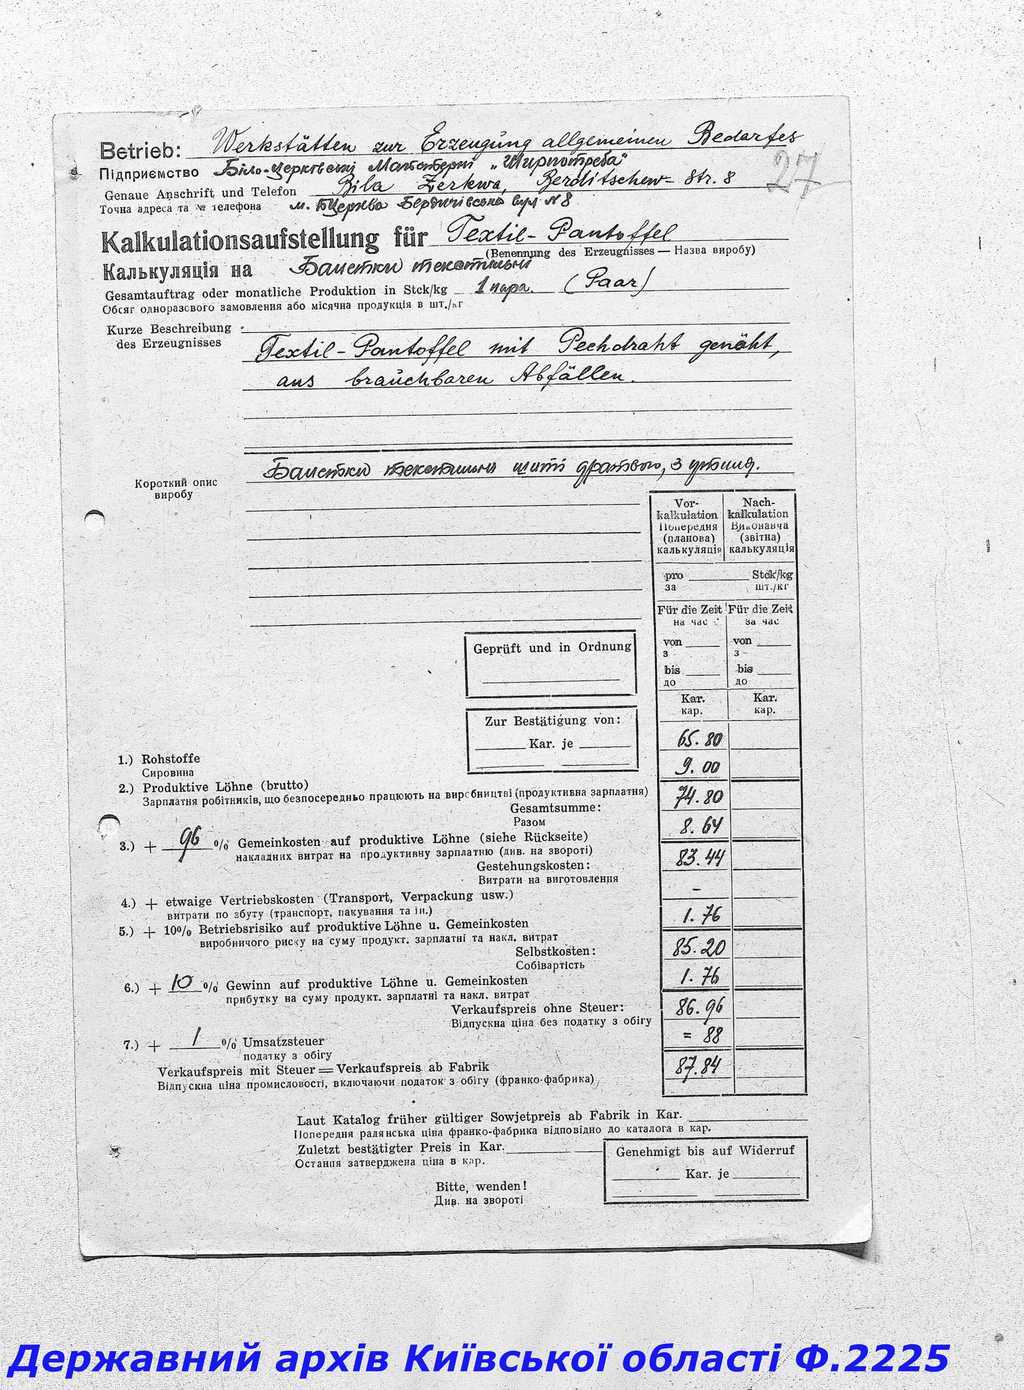 Betrieb: Werkstätten zur Erzeugung allgemeinen Bedarfes
Підприємство Біло-церківські Майстерні „Ширпотреба“
27
Genaue Anschrift und Telefon Bila Zerkwa, Berditschew-Str. 8
Точна адреса та № телефона м. БЦерква Бердичівська вул № 8
Kalkulationsaufstellung für Textil-Pantoffel
(Benennung des Erzeugnisses — Назва виробу)
Калькуляція на текстильні
Gesamtauftrag oder monatliche Produktion in Stck/kg 1 пара. (Paar)
Обсяг одноразового замовлення або місячна продукція в шт./кг
Kurze Beschreibung
des Erzeugnisses
Textil-Pantoffel mit Pechdraht genäht,
aus brauchbaren Abfällen.
Короткий опис
виробу
текстильні шиті дратвою, з
Vor-
kalkulation
Попередня
(планова)
калькуляція
Nach-
kalkulation
Виконавча
(звітна)
калькуляція
pro Stck/kg
за шт./кг
Für die Zeit Für die Zeit
на час за час
von von
з з
bis bis
до до
Kar. Kar.
кар. кар.
Geprüft und in Ordnung
Zur Bestätigung von:
Kar. je
1.) Rohstoffe 65.80
Сировина
2.) Produktive Löhne (brutto) 9.00
Зарплатня робітників, що безпосередньо працюють на виробництві (продуктивна зарплатня)
Gesamtsumme: 74.80
Разом
3.) + 96 % Gemeinkosten auf produktive Löhne (siehe Rückseite) 8.64
накладних витрат на продуктивну зарплатню (див. на звороті)
Gestehungskosten: 83.44
Витрати на виготовлення
4.) + etwaige Vertriebskosten (Transport, Verpackung usw.) –
витрати по збуту (транспорт, пакування та ін.)
5.) + 10% Betriebsrisiko auf produktive Löhne u. Gemeinkosten 1.76
виробничого риску на суму продукт. зарплатні та накл. витрат
Selbstkosten: 85.20
Собівартість
6.) + 10 % Gewinn auf produktive Löhne u. Gemeinkosten 1.76
прибутку на суму продукт. зарплатні та накл. витрат
Verkaufspreis ohne Steuer: 86.96
Відпускна ціна без податку з обігу
7.) + 1 % Umsatzsteuer = 88
податку з обігу
Verkaufspreis mit Steuer = Verkaufspreis ab Fabrik 87.84
Відпускна ціна промисловості, включаючи податок з обігу (франко-фабрика)
Laut Katalog früher gültiger Sowjetpreis ab Fabrik in Kar.
Попередня радянська ціна франко-фабрика відповідно до каталога в кар.
Zuletzt bestätigter Preis in Kar.
Остання затверджена ціна в кар.
Genehmigt bis auf Widerruf
Kar. je
Bitte, wenden!
Див. на звороті
Державний архів Київської області Ф.2225